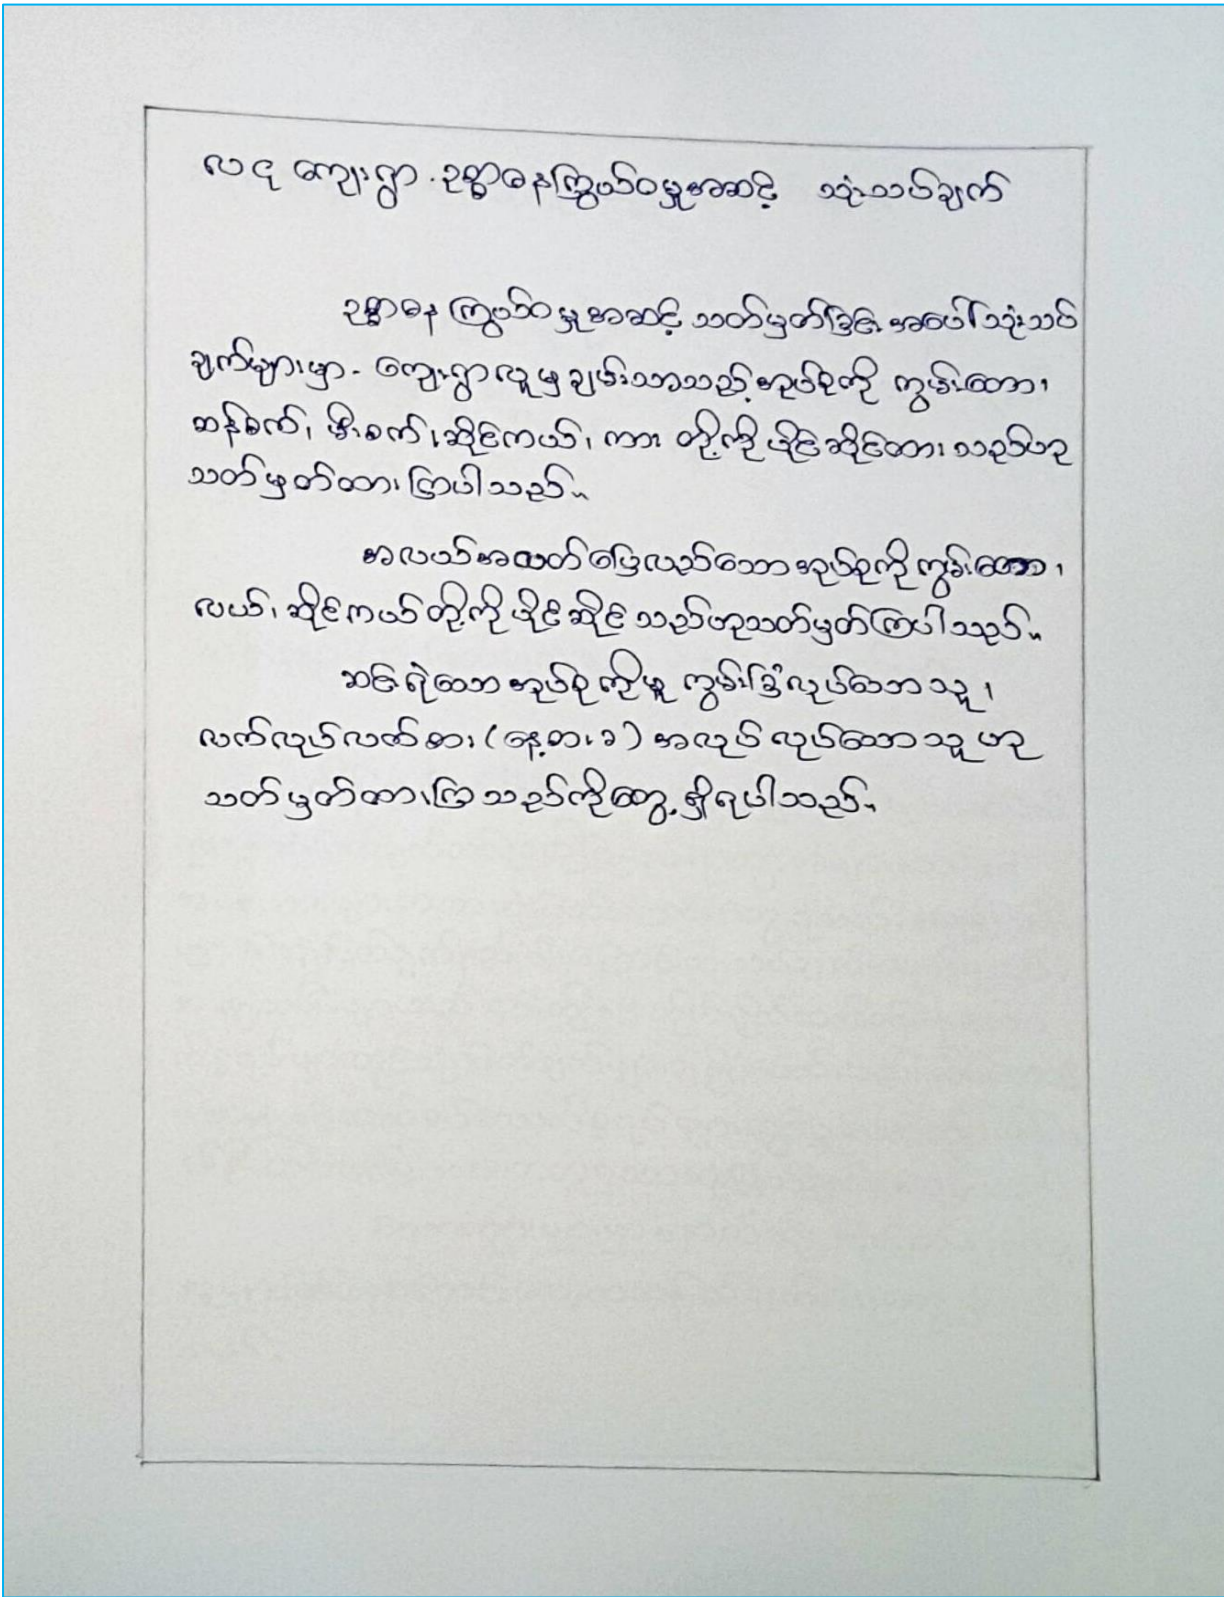 လငု ကျေးရွာ . ဥစ္စာဓနကြွယ်ဝမှုအဆင့် သုံးသပ်ချက်
ဥစ္စာဓနကြွယ်ဝမှုအဆင့် သတ်မှတ်ခြင်း အပေါ် သုံးသပ်
ချက်များမှာ - ကျေးရွာလူမှု ချမ်းသာသည့်အုပ်စုကို ကွမ်းတော၊
ဆန်စက်၊ မီးစက်၊ ဆိုင်ကယ်၊ ကား တို့ကို ပိုင်ဆိုင်ထား သည်ဟု
သတ်မှတ်ထား ကြပါသည်။
အလယ်အလတ်ပြေလည်သော အုပ်စုကို ကွမ်းတော၊
လယ်၊ ဆိုင်ကယ် တို့ကို ပိုင်ဆိုင် သည်ဟုသတ်မှတ်ကြပါသည်။
ဆင်းရဲသော အုပ်စု ကိုမူ ကွမ်းခြံလုပ်သော သူ၊
လက်လုပ်လက်စား (နေ့စားခ) အလုပ် လုပ်သော သူ ဟု
သတ်မှတ်ထားကြ သည်ကိုတွေ့ ရှိရပါသည်။